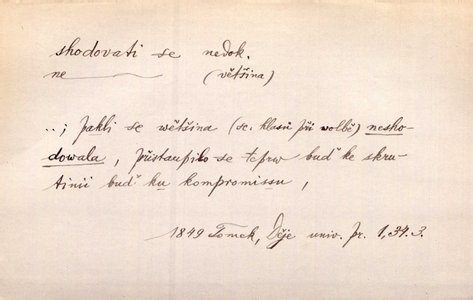 shodovati se nedok.
ne (většina)
..; pakli se wětšina (sc. klasů při volbě) nesho-
dowala, přistaupilo se teprw buď ke skru-
tinii buď ku kompromissu,
1849 Tomek, Děje univ. pr. 1,34.3.